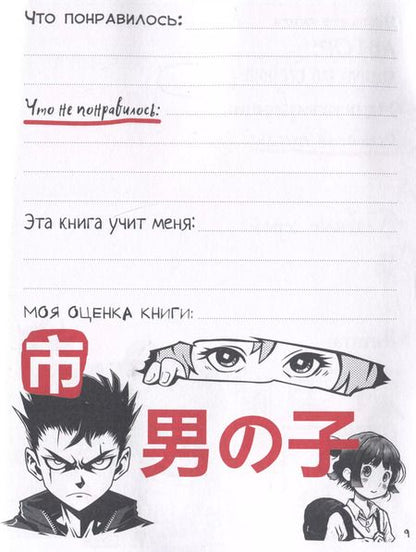 Что понравилось:
Что не понравилось:
Эта книга учит меня:
Моя оценка книги:
市
男の子
9